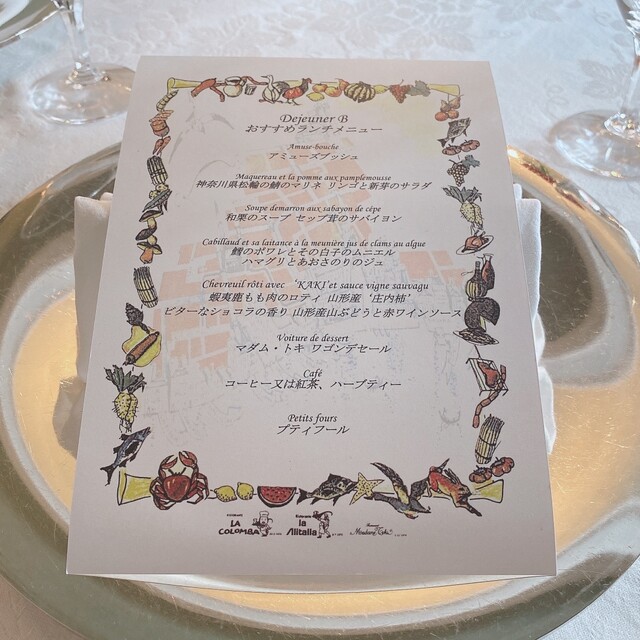 Dejeuner B
おすすめランチメニュー
Amuse-bouche
アミューズブッシュ
Maquereau et la pomme aux pamplemousse
神奈川県松輪の鯖のマリネ リンゴと新芽のサラダ
Soupe demarron aux sabayon de cépe
和栗のスープ セップ茸のサバイヨン
Cabillaud et sa laitance à la meunière jus de clams au algue
鱈のポワレとその白子のムニエル
ハマグリとあおさのりのジュ
Chevreuil rôti avec 'KAKI et sauce vigne sauvagu
蝦夷鹿もも肉のロティ 山形産 '庄内柿'
ビターなショコラの香り 山形産山ぶどうと赤ワインソース
Voiture de dessert
マダム・トキ ワゴンデセール
Café
コーヒー又は紅茶、ハーブティー
Petits fours
プティフール
LA COLOMBA
la Alitalia